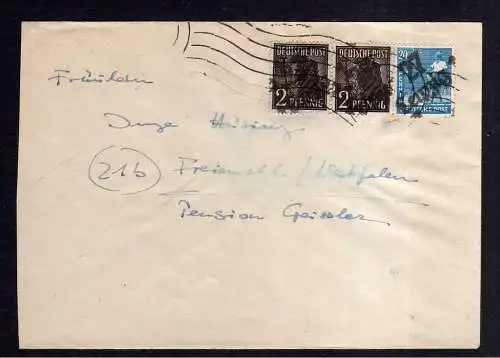 DEUTSCHE POST DEUTSCHE POST 20
2 PFENNIG 2 PFENNIG 27 Leipzig
Fräulein
Inge
21b Freienohl / Westfalen
Pension Geissler